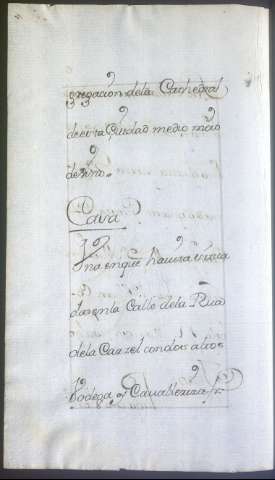 gregacion dela Cathedral
de esta Ciudad medio mrô
de vino.
Casa
Vna enque havita situa
da en la Calle dela Rua
dela Carzel con dos altos
bodega, y Cavalleriza